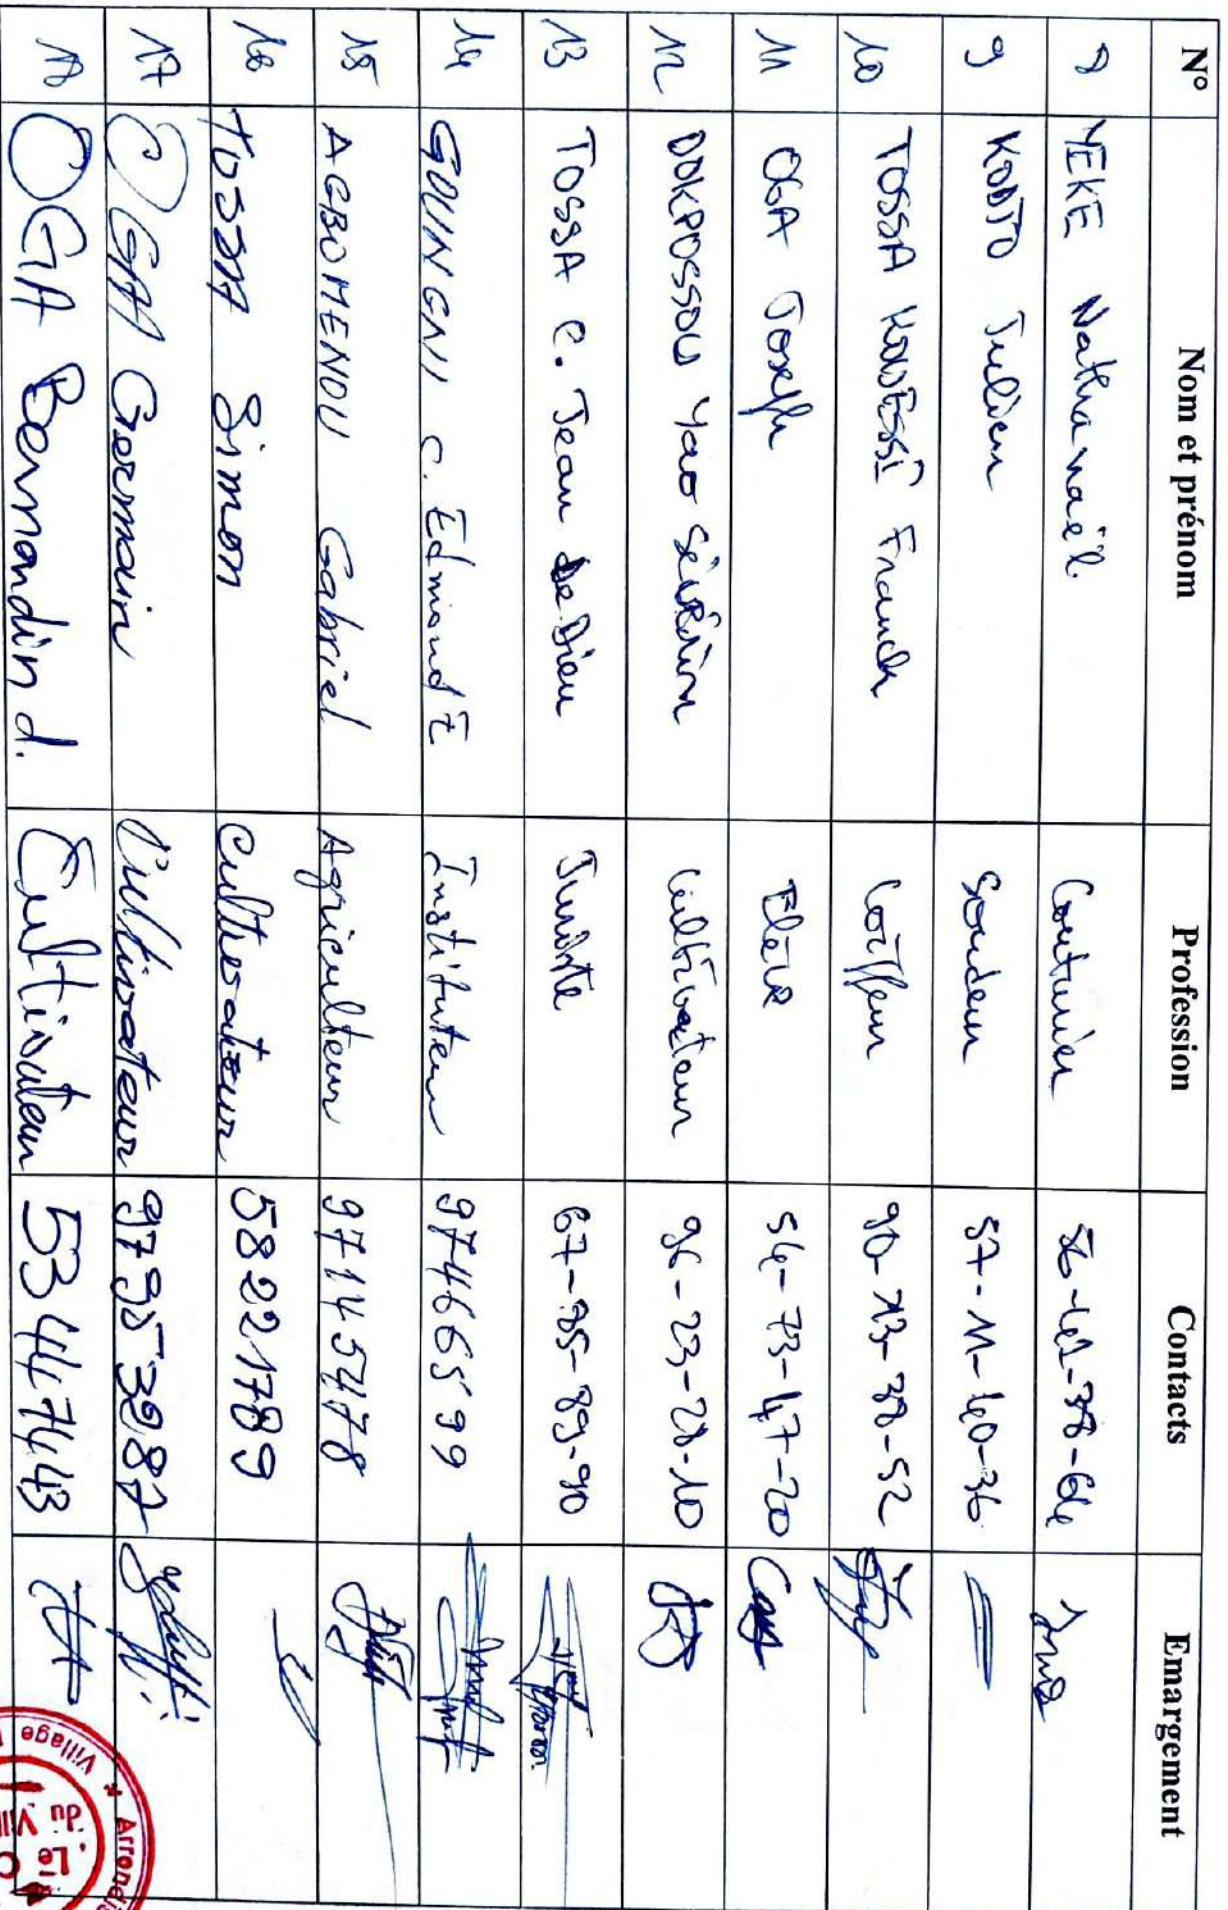 N° Nom et prénom Profession Contacts Emargement
8 YEKE Nathanaël Couturier 56-41-38-64
9 KODJO Julien Soudeur 57-11-40-36
10 TOSSA Franck Coiffeur 90-13-38-52
11 OGA Joseph Elève 54-73-47-20
12 DOKPOSSOU Yao Séverin Cultivateur 96-23-28-10
13 TOSSA C. Jean de Dieu Juriste 67-85-89-90
14 C. Edmond 97466599
15 AGBOMENOU Gabriel Agriculteur 97145478
16 TOSSA Simon Cultivateur 58221789
17 OGA Germain Cultivateur 97953987
18 OGA Bernandin d. Cultivateur 53447443
Village
Arrondis
Le C
du Vill